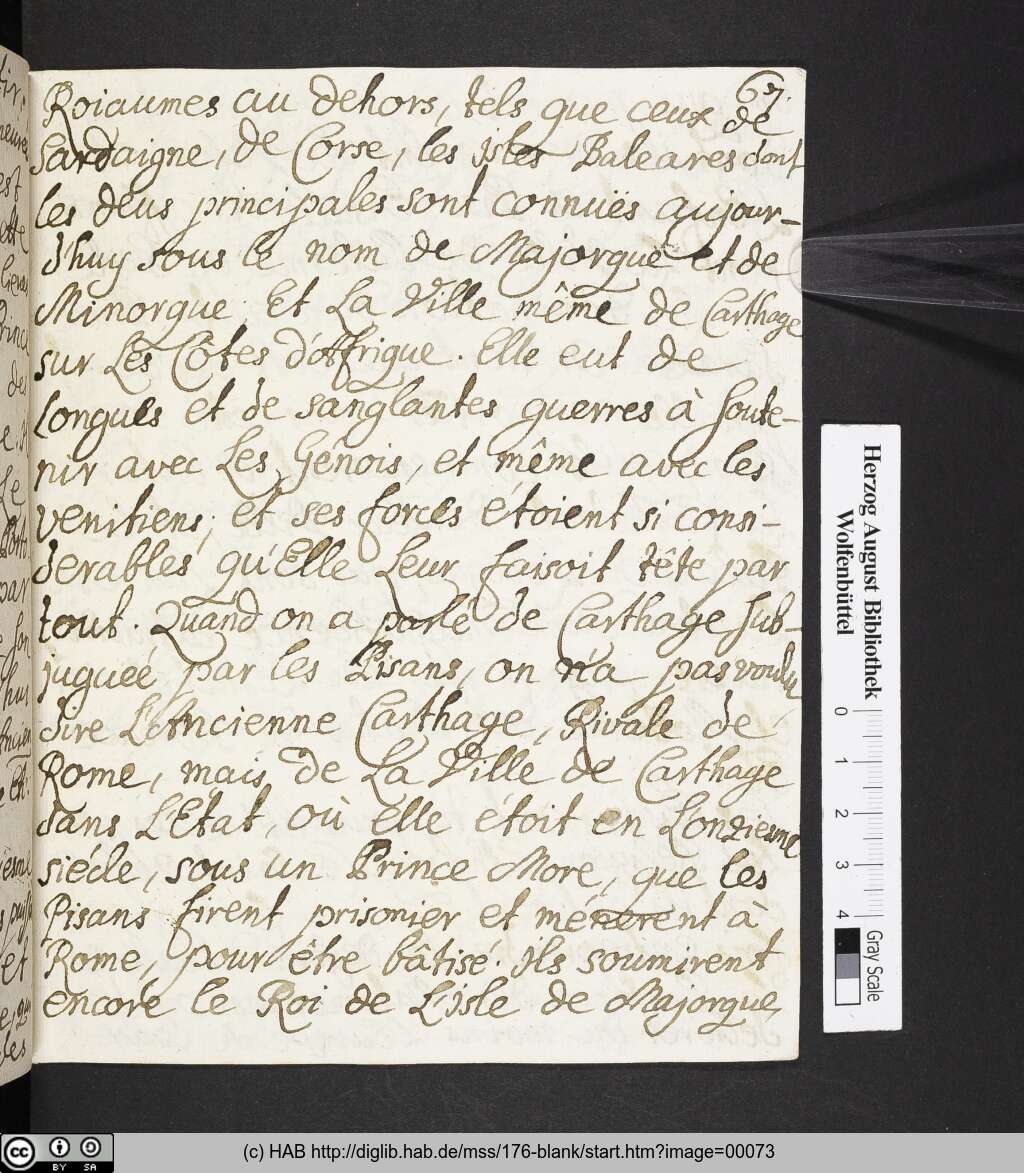 67.
Roiaumes au dehors, tels que ceux de
Sardaigne, de Corse, les isles Baleares dont
les deus principales sont connuës aujour-
d'huy sous le nom de Majorque et de
Minorque. Et La Ville même de Carthage
sur Les Côtes d'Affrique. Elle eut de
Longues et de sanglantes guerres à soute-
nir avec Les Génois, et même avec les
venitiens; et ses forces étoient si consi-
derables qu'Elle Leur faisoit tête par
tout. Quand on a parlé de Carthage sub-
juguée par les Pisans, on n'a pas voulu
dire L'Ancienne Carthage, Rivale de
Rome, mais de La Ville de Carthage
dans L'Etat, où Elle étoit en L'onziesme
siécle, sous un Prince More, que les
Pisans firent prisonier et ménerent à
Rome, pour être bâtisé. ils soumirent
encore le Roi de L'isle de Majorque,
Herzog August Bibliothek
Wolfenbüttel
0 1 2 3 4
Gray Scale
cc BY SA
(c) HAB http://diglib.hab.de/mss/176-blank/start.htm?image=00073